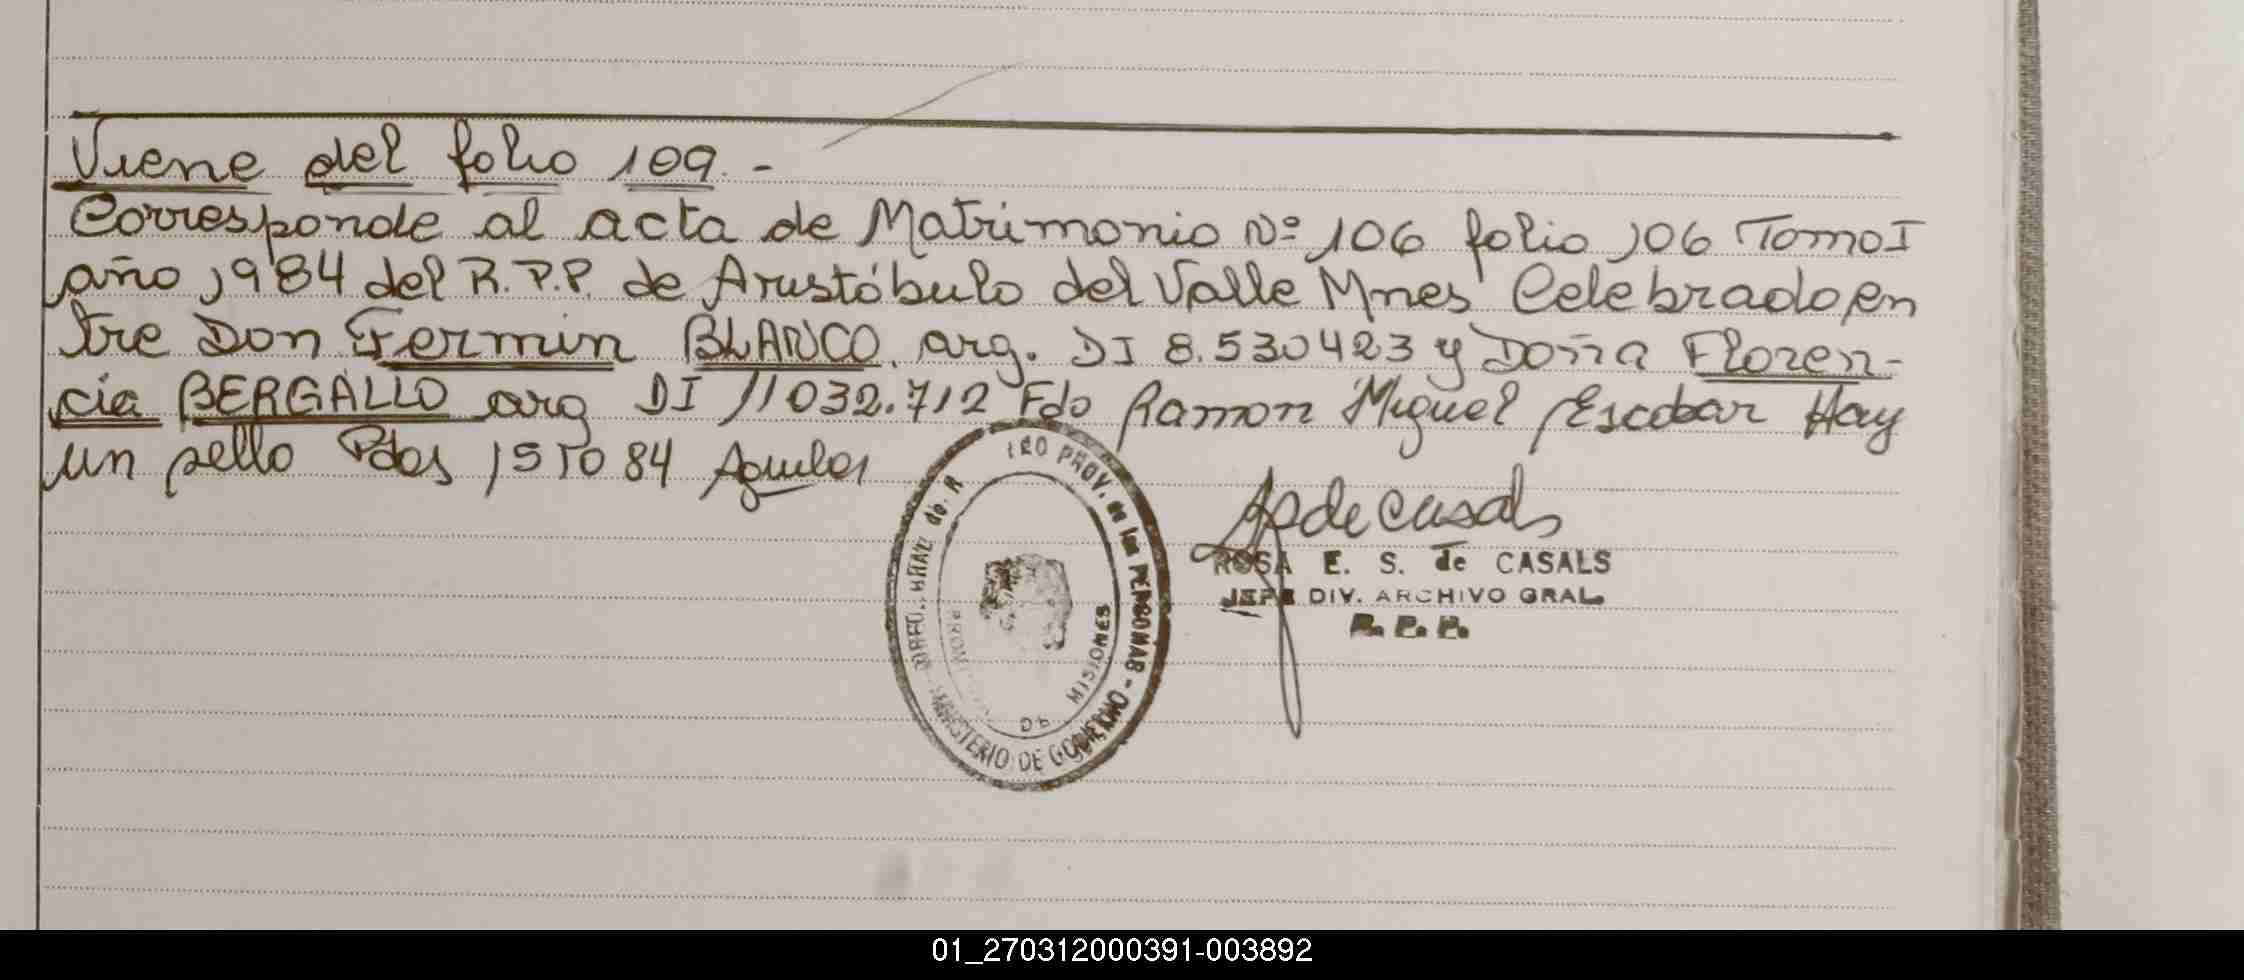 Viene del folio 109.-
Corresponde al acta de Matrimonio Nº 106 folio 106 Tomo I
año 1984 del R.P.P. de Aristóbulo del Valle Mnes Celebrado en
tre Don Fermin BLANCO. arg. DI 8.530423 y Doña Floren-
cia BERGALLO arg DI 11032.712 Fdo Ramon Miguel Escobar Hay
un sello Pdas
de Casals
ROSA E. S. de CASALS
JEFE DIV. ARCHIVO GRAL.
R. P. P.
PROV. de las PERSONAS - MINISTERIO DE GOBIERNO
DE MISIONES
01_270312000391-003892